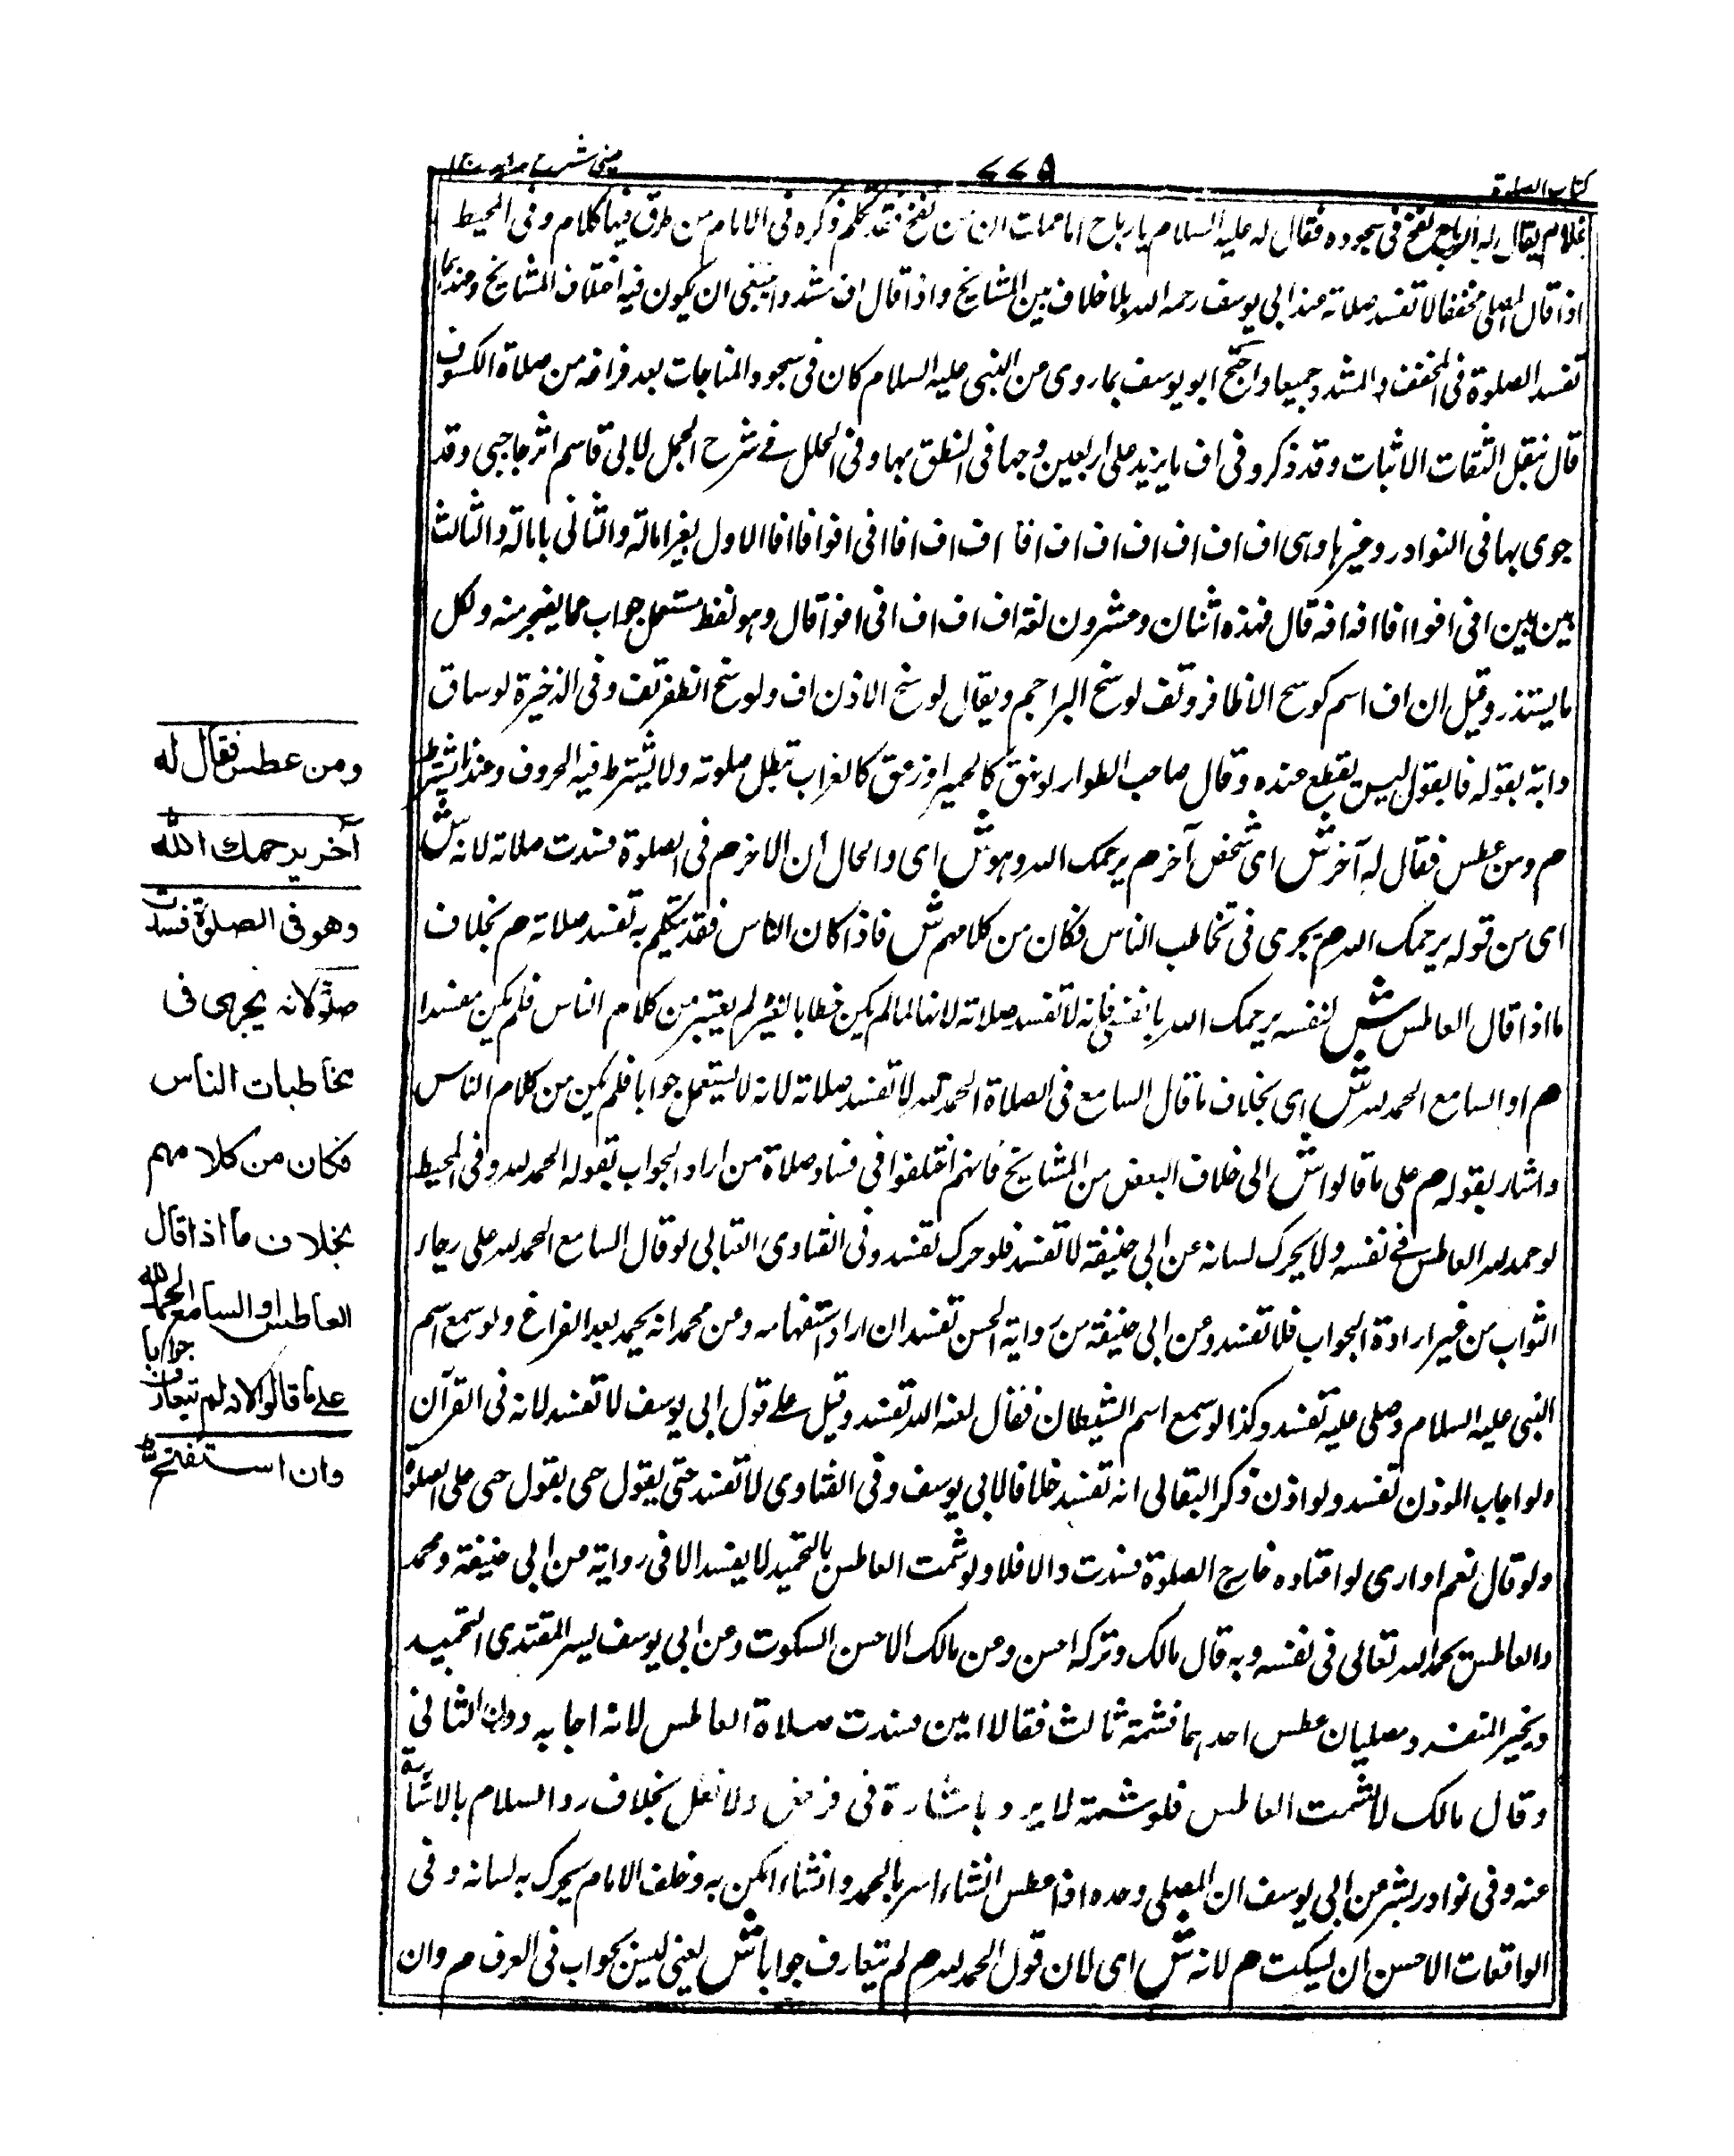 كتاب الصلوة
٧٧٥
عينى شرح هدايه ج ١
غلام يقال له رباح نفخ فى سجوده فقال له عليه السلام يا رباح اما علمت ان من نفخ فقد تكلم ذكره فى الامام من طرق فيها كلام وفى المحيط
اذا قال المصلى مخففا لا تفسد صلاته عند ابى يوسف رحمه الله بلا خلاف بين المشايخ واذا قال اف مشددا ينبغى ان يكون فيه اختلاف المشايخ وعندهما
تفسد الصلوة فى المخفف والمشدد جميعا واحتج ابو يوسف بما روى عن النبى عليه السلام كان فى سجود المناجات بعد فراغه من صلاة الكسوف
قال بنقل الثقات الاثبات وقد ذكر وفى اف ما يزيد على اربعين وجها فى النطق بها وفى الحلل فے شرح الجمل لابى قاسم اثر جاجبى وقد
جوى بها فى النوادر وغيرها وهى اف اف اف اف اف اف افا اف اف افا افى افوا فا افا الاول بغير امالة والثانى بامالة والثالث
بين بين افى افوا افا افه افه قال فهذه اثنان وعشرون لغة اف اف اف افى افوا قال وهو لفظ مستعمل جواب عما يضجر منه ولكل
ما يستقذر وقيل ان اف اسم كوسخ الاظافر وتف لوسخ البراجم ويقال لوسخ الاذن اف ولوسخ الظفر تف وفى الذخيرة لوساق
دابة بقوله فا بقول ليس يقطع عنده وقال صاحب الطوار لو نهق كالحمير او زعق كالغراب تبطل صلوته ولا يشترط فيه الحروف وعندنا يشترط
م ومن عطس فقال له آخر ش اى شخص آخر م يرحمك الله وهو ش اى والحال ان الاخر م فى الصلوة فسدت صلاته لانه ش
اى من قوله يرحمك الله م يجرى فى تخاطب الناس فكان من كلامهم ش فاذا كان الناس فقد يتكلم به تفسد صلاته م بخلاف
ما اذا قال العاطس ش لنفسه يرحمك الله يا نفسى فانه لا تفسد صلاته لانها لما لم يكن خطابا لغيره لم يعتبر من كلام الناس فلم يكن مفسدا
م او السامع الحمد لله ش اى بخلاف ما قال السامع فى الصلاة الحمد لله لا تفسد صلاته لانه لا يستعمل جوابا فلم يكن من كلام الناس
واشار بقوله م على ما قالوا ش الى خلاف البعض من المشايخ فانهم اختلفوا فى فساد صلاة من اراد الجواب بقوله الحمد لله وفى المحيط
لو حمد لله العاطس فے نفسه ولا يحرك لسانه عن ابى حنيفة لا تفسد فلو حرك تفسد وفى الفتاوى العتابى لو قال السامع الحمد لله على رجاء
الثواب من غير ارادة الجواب فلا تفسد وعن ابى حنيفة من رواية الحسن تفسد ان اراد استفهامه وعن محمد انه يحمد بعد الفراغ ولو سمع اسم
النبى عليه السلام وصلى عليه تفسد وكذا لو سمع اسم الشيطان فقال لعنه الله تفسد وقيل على قول ابى يوسف لا تفسد لانه فى القرآن
ولو اجاب الموذن تفسد ولو اذن ذكر البقالى انه تفسد خلافا لابى يوسف وفى الفتاوى لا تفسد حتى يقول حى بقول حى على الصلوة
ولو قال نعم او ارى لو اعتاده خارج الصلوة فسدت والا فلا ولو شمت العاطس بالتحميد لا يفسد الا فى رواية عن ابى حنيفة ومحمد
والعاطس يحمد الله تعالى فى نفسه وبه قال مالك وتركه احسن وعن مالك الاحسن السكوت وعن ابى يوسف يسر المقتدى التحميد
ويخير المنفرد مصليان عطس احدهما فشمته ثالث فقالا امين فسدت صلاة العاطس لانه اجابه دون الثانى
وقال مالك لا يشمت العاطس فلو شمته لا يرد باشارة فى فرض ولا نفل بخلاف رد السلام بالاشارة
عنه وفى نوادر بشر عن ابى يوسف ان المصلى وحده اذا عطس ان شاء اسر بالحمد وان شاء اعلن به وخلف الامام يحرك به لسانه وفى
الواقعات الاحسن ان يسكت م لانه ش اى لان قول الحمد لله م لم يتعارف جوابا ش يعنى ليس بجواب فى العرف م وان
ومن عطس فقال له
آخر يرحمك الله
وهو فى الصلوة فسدت
صلوته لانه يجرى فى
مخاطبات الناس
فكان من كلامهم
بخلاف ما اذا قال
العاطس او السامع الحمد لله
على ما قالوا لانه لم يتعارف جوابا
وان استفتح